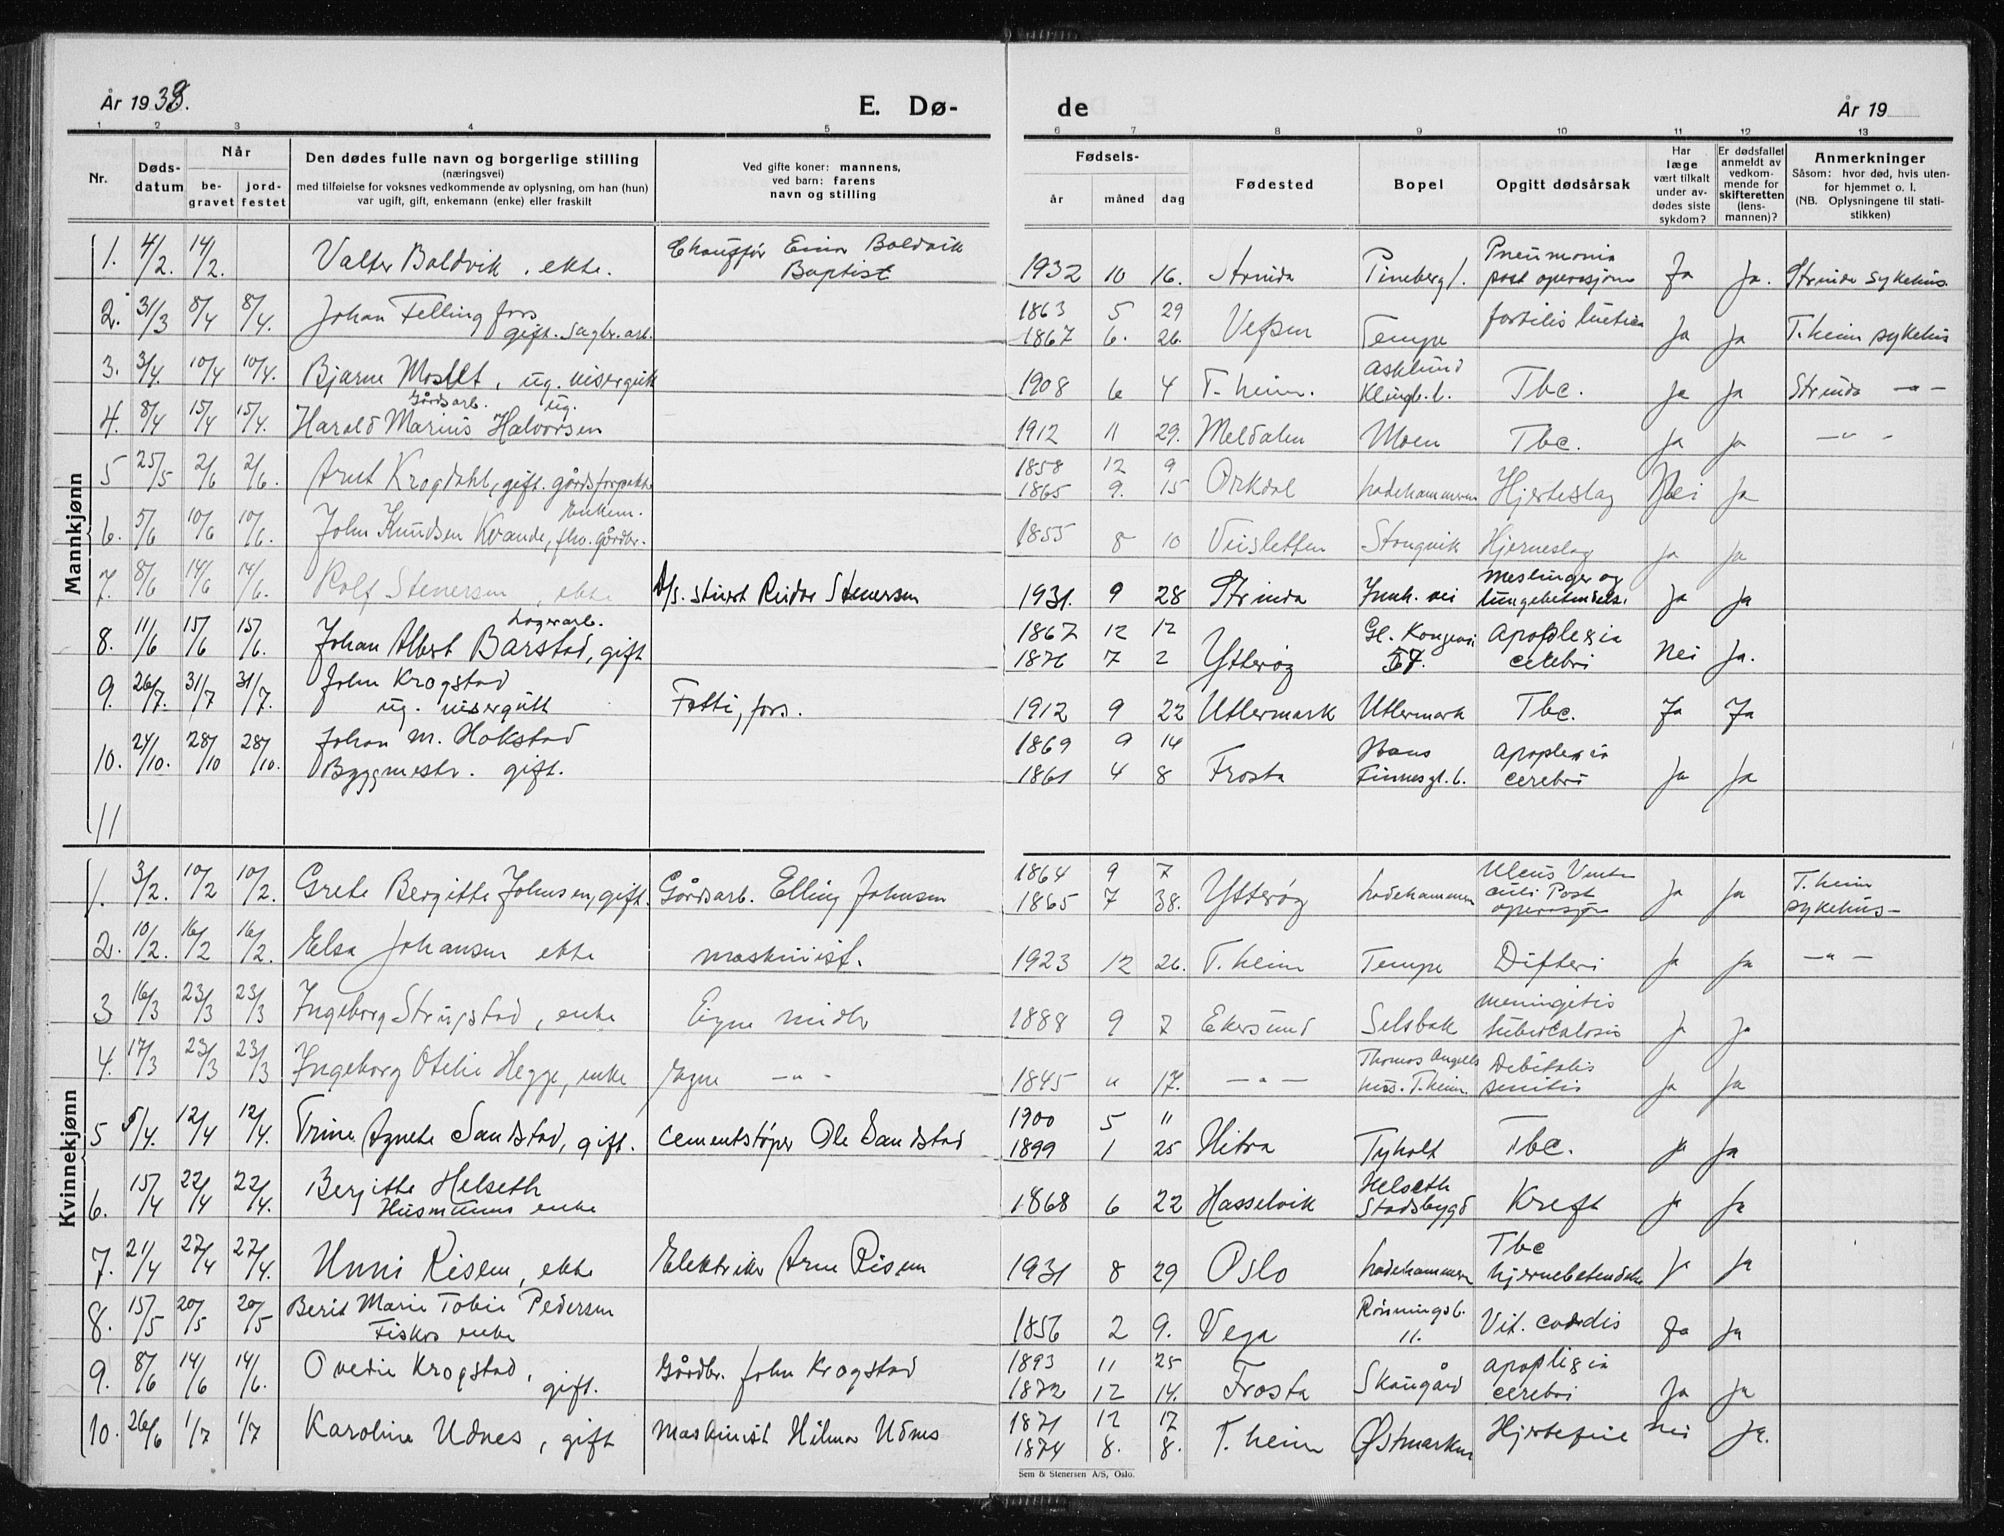 År 1933.
E. Dø- de
År 19
1 2 3 4 5 6 7 8 9 10 11 12 13
Nr. Døds-datum Når be-gravet jord-festet
Den dødes fulle navn og borgerlige stilling
(næringsvei)
med tilføielse for voksnes vedkommende av oplysning, om han (hun)
var ugift, gift, enkemann (enke) eller fraskilt
Ved gifte koner: mannens,
ved barn: farens
navn og stilling
Fødsels- år måned dag
Fødested
Bopel
Opgitt dødsårsak
Har læge vært tilkalt under av-dødes siste sykdom?
Er dødsfallet anmeldt av vedkom-mende for skifteretten (lens-mannen)?
Anmerkninger
Såsom: hvor død, hvis uten-for hjemmet o. l.
(NB. Oplysningene til stati-stikken)
Mannkjønn
1. 4/2. 14/2. Valter Boldvik, ekte. Chauffør Einar Boldvik Baptist 1932 10 16. Strinda Pineberg l. Pneumonia post operasjon Ja Ja. Strinda sykehus.
2. 31/3 8/4 8/4. Johan Fellingfors gift. sagbr.arb. 1863 5 29 1867 6. 26. Vefsen Tempe Ja Ja T.heim sykehus
3. 3/4. 10/4 10/4. Bjarne Moslet, ug. visergutt 1908 6 4 T.heim. Asklund Klingb. l. Tbc. Ja Ja Strinda -"-
4. 8/4 15/4 15/4. Gårdsarb. ug. Harald Marius Halvorsen 1912 11 29. Meldalen Moen Tbc. Ja Ja -"-
5 25/5 2/6 2/6. Arnt Krogdahl, gift. gårdsforpakter 1858 12 9 1865 9. 15 Orkdal Ladehammeren Hjerteslag Nei Ja
6. 5/6 10/6 10/6. John Knudsen Kvande, Enkem. fhv. gårdbr. 1855 8 10 Stangvik Hjerneslag Ja Ja
7. 8/6 14/6 14/6. Rolf Stenersen, ekte Reidar Stenersen 1931. 9 28 Strinda Innh. vei Meslinger og lungebetendelse Ja Ja
8. 11/6 15/6 15/6. Lagerarb. Johan Albert Barstad, gift 1867 12 12 1876 7 2 Ytterøy Gl. Kongevei 57. Apoplexia cerebri Nei Ja.
9. 26/7. 31/7 31/7. John Krogstad ug. visergutt Fatti, fors. 1912 9 22 Utlermark Utlermark Tbc. Ja Ja
10. 24/10. 28/10 28/10. Johan M. Hokstad Byggmestr. gift. 1869 9 14 1861 4 8 Frosta Hans Finnesgt. 6. Apoplexia cerebri Ja Ja
11
Kvinnekjønn
1. 3/2. 10/2 10/2. Grete Bergitte Johnsen, gift. Gårdsarb. Elling Johnsen 1864 9 7 1865 7 38. Ytterøy Ladehammeren Ulcus Ventriculi Post operasjon Ja Ja T.heim sykehus-
2. 10/2. 16/2 16/2. Elsa Johansen ekte maskinist. 1923 12 26. T.heim Tempe Difteri Ja Ja -"-
3 16/3 23/3 23/3 Ingeborg Strugstad, enke Egne midler 1888 9 7 Ekersund Selsbak Meningitis tuberculosis Ja Ja
4. 17/3 23/3 23/3 Ingeborg Otelie Hegge, enke Egne -"- 1845 " 17. -"- Thomas Angells hus. T.heim. Debilitas senilis Ja Ja
5 5/4. 12/4 12/4. Trine Agnete Sandstad, gift. Cementstøper Ole Sandstad 1900 5 11 1899 1 25 Hitra Tyholt Tbc. Ja Ja
6. 15/4 22/4 22/4. Bergitte Helseth Husmanns enke 1868 6 22 Hasselvik Helseth Stadsbygd Kreft Ja Ja
7. 21/4 27/4 27/4. Unni Risem, ekte Elektriker Arne Risem 1931 8 29 Oslo Ladehammeren Tbc hjernebetendelse Ja Ja
8. 15/5 20/5 20/5 Berit Marie Tobie Pedersen Fiskers enke 1856 2 9. Vega Rønningsb. 11. Vit. cordis Ja Ja
9. 8/6 14/6 14/6. Ovedie Krogstad, gift. Gårdbr. John Krogstad 1893 11 25 1872 12 14. Frosta Skaugård Apoplexia cerebri Ja Ja
10. 26/6 1/7 1/7 Karoline Udnes, gift Maskinist Hilmar Udnes 1871 12 17 1874 8. 8. T.heim Østmarken Hjertefeil Nei Ja.
Sem & Stenersen A/S, Oslo.